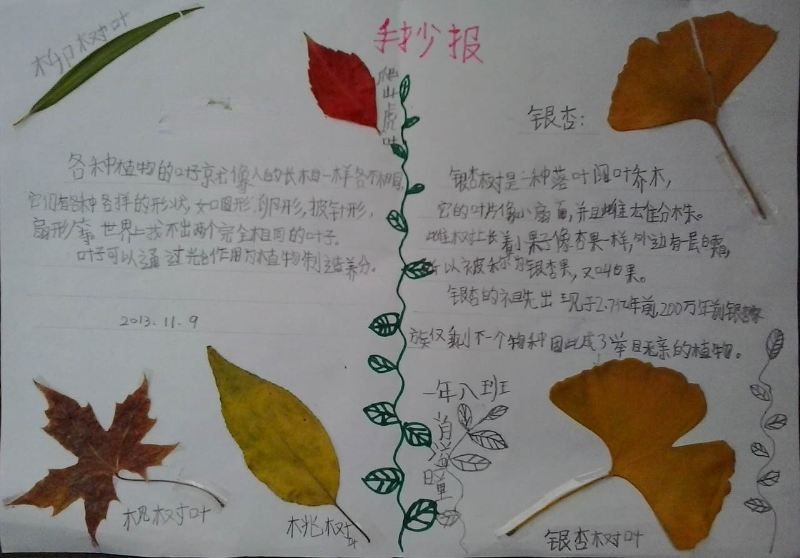 手抄报
柳树叶
爬山虎叶
各种植物的叶子就像人的长相一样各不相同,
它们有各种各样的形状,如圆形,卵形,披针形,
扇形等。世界上找不出两个完全相同的叶子。
叶子可以通过光合作用为植物制造养分。
2013.11.9
银杏:
银杏树是一种落叶阔叶乔木,
它的叶片像小扇面,并且雌雄分株。
雌树上长着果子像杏果一样,外边有一层白霜,
所以被称为银杏果,又叫白果。
银杏的祖先出现于2.7亿年前,200万年前银杏家
族仅剩下一个物种因此成了举目无亲的植物。
一年八班
肖
枫树叶
桃树叶
银杏树叶